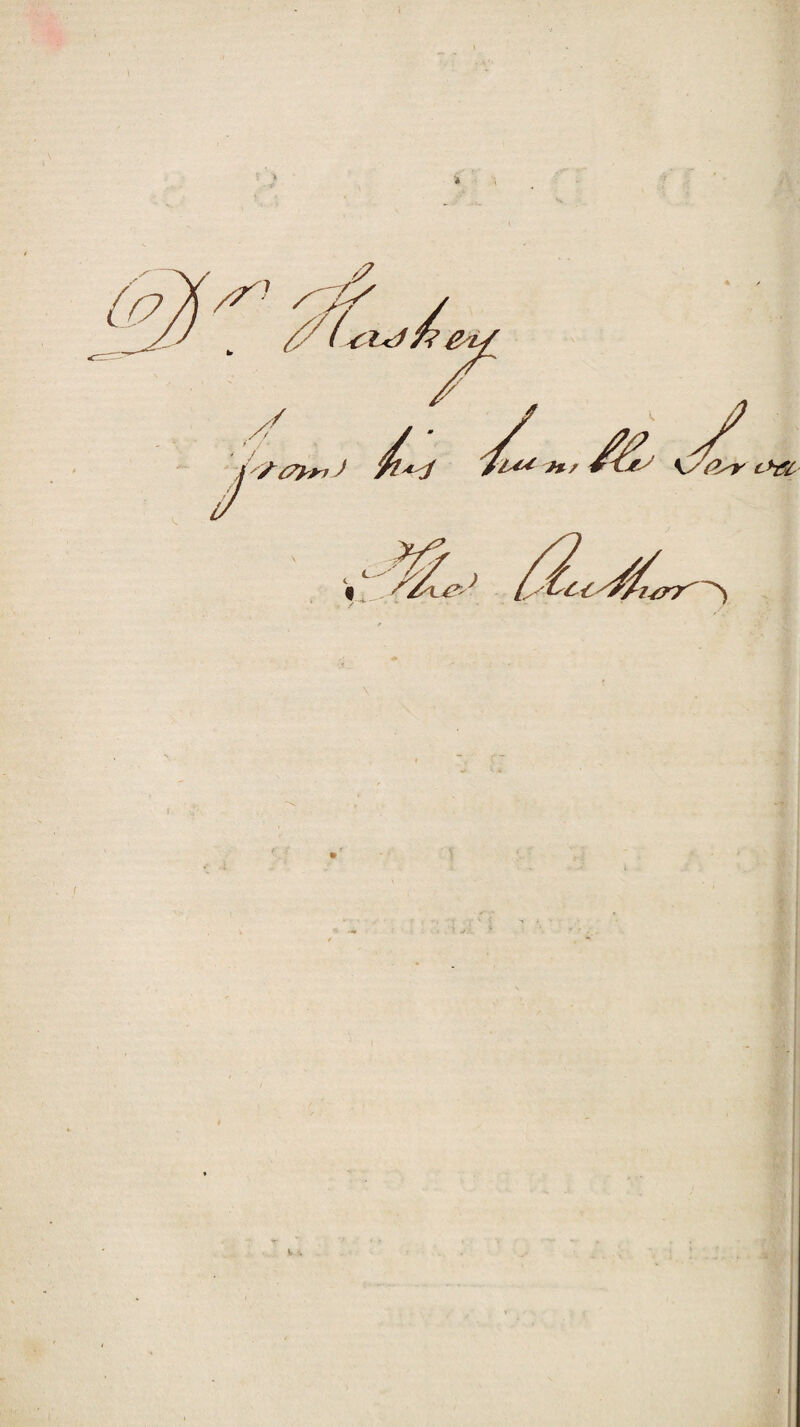 Dr. Haskey
from his humble Serva
The Author